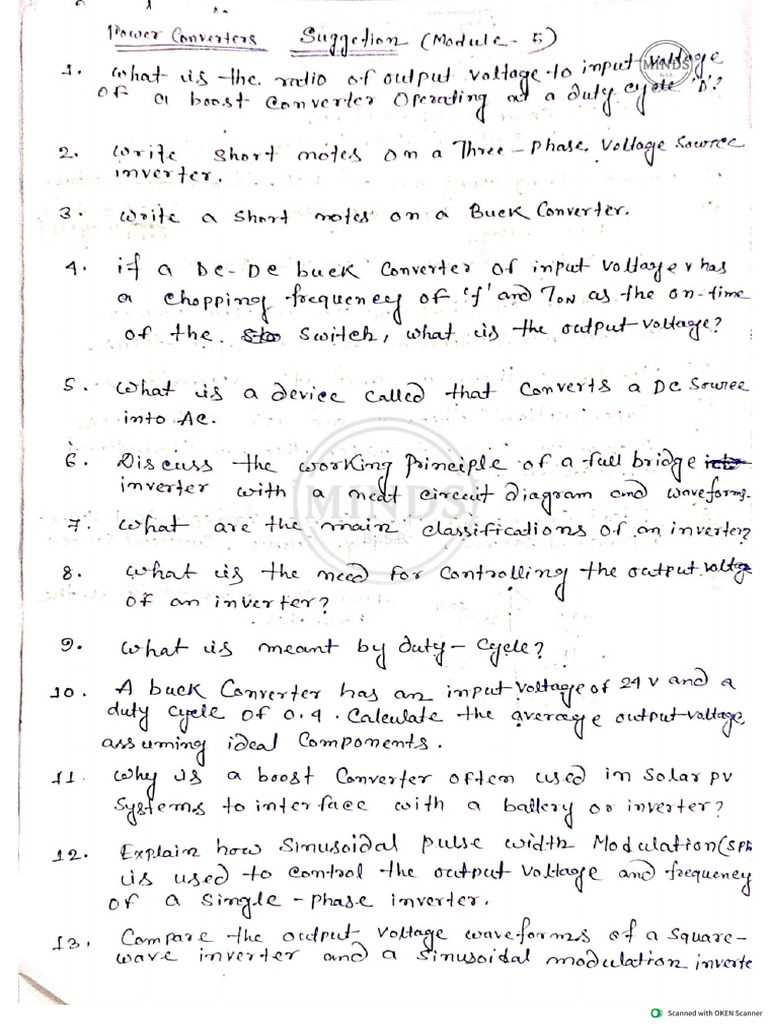 Power Converters Suggetion (Module - 5)
1. What is the ratio of output voltage to input voltage
of a boost converter operating at a duty cycle 'D'?
2. Write short notes on a Three - Phase Voltage Source
inverter.
3. Write a short notes on a Buck Converter.
4. if a DC-DC buck converter of input voltage v has
a chopping frequency of 'f' and TON as the on-time
of the switch, what is the output voltage?
5. What is a device called that converts a DC Source
into AC.
6. Discuss the working principle of a full bridge
inverter with a neat circuit diagram and waveforms.
7. What are the main classifications of an inverter?
8. What is the need for controlling the output voltge
of an inverter?
9. What is meant by duty - cycle?
10. A buck Converter has an input voltage of 24 v and a
duty cycle of 0.4. Calculate the average output voltage
assuming ideal Components.
11. Why is a boost Converter often used in Solar PV
Systems to interface with a battery or inverter?
12. Explain how Sinusoidal Pulse width Modulation (SPW
is used to control the output voltage and frequency
of a single - phase inverter.
13. Compare the output voltage waveforms of a square-
wave inverter and a sinusoidal modulation inverte
MINDS
MINDS
By S.B.
Scanned with OKEN Scanner